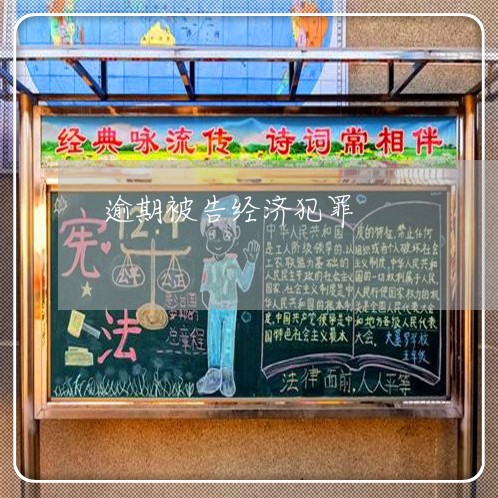 经典咏流传 诗词常相伴
逾期被告经济犯罪
宪
法
公平
公正
中华人民共和国
是工人阶级领导的,以
工农联盟为基础的
人民民主专政的社会主义
国家.社会主义制度是中
华人民共和国的根本制
度,中国共产党领导是中
国特色社会主义最本
质的特征.禁止任何
组织或者个人破坏社会
主义制度.中华人民共和
国的一切权利属于人民.
人民行使国家权力的机
关是全国人民代表大会
和地方各级人民代表
大会.
五年级
法律面前,人人平等